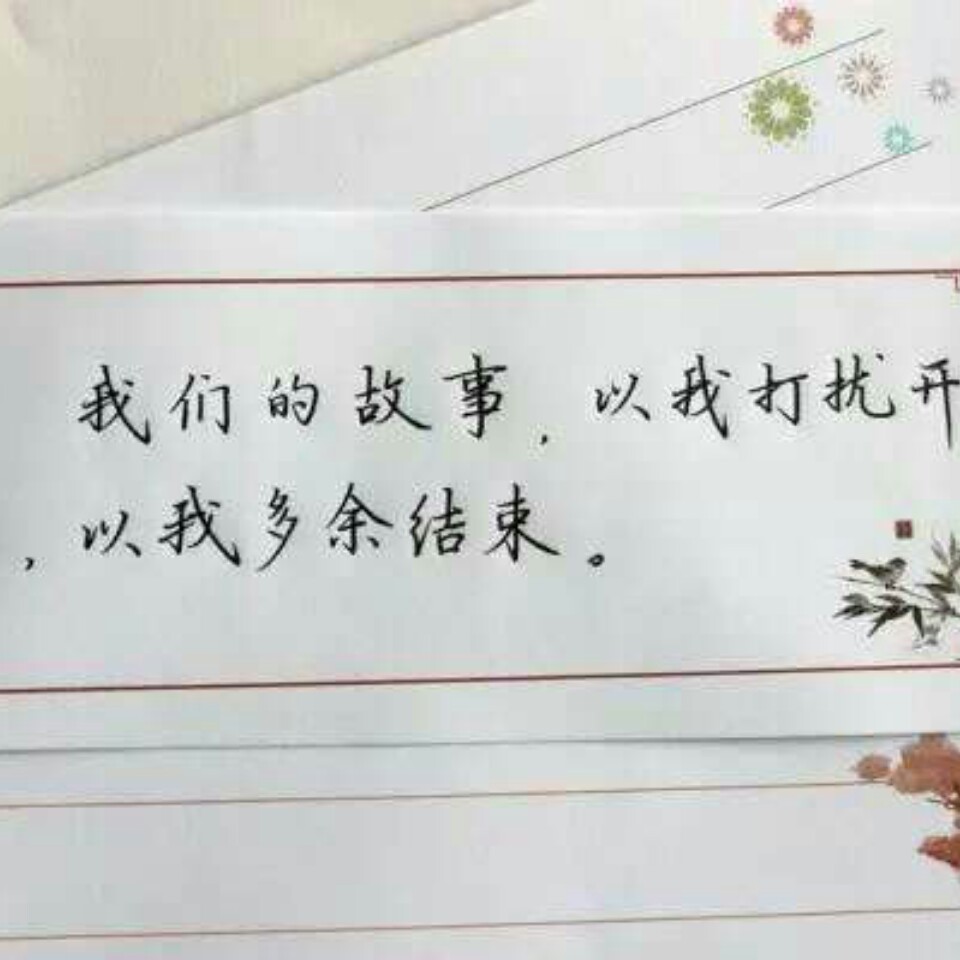 我们的故事，以我打扰开
，以我多余结束。